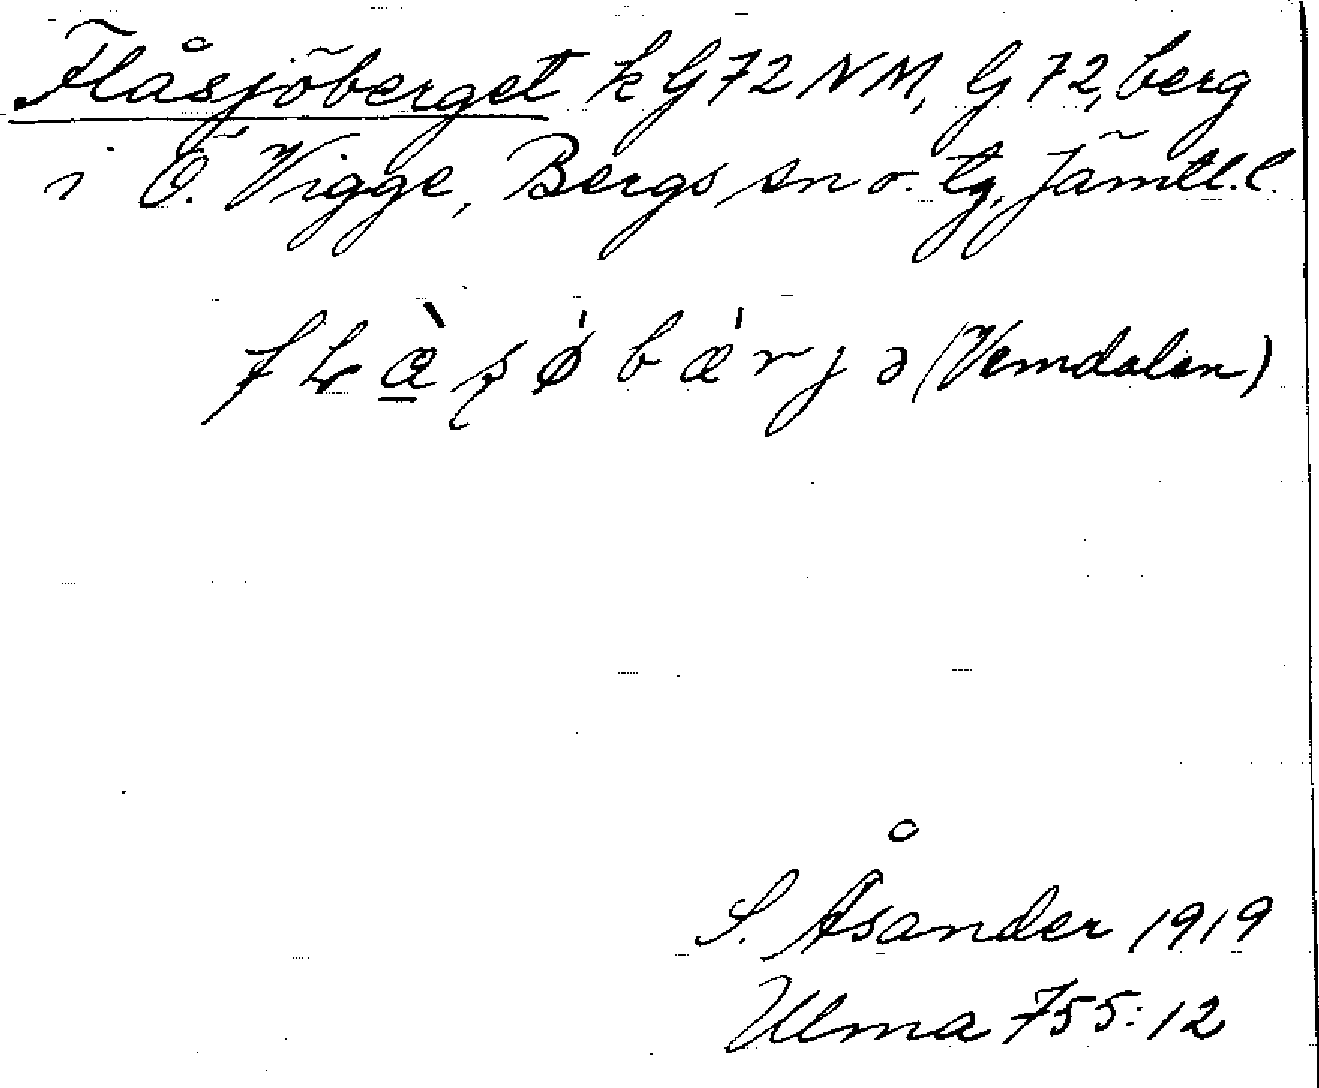 Flåsjöberget k G 72 NM, G 72, berg
i Ö. Vigge, Bergs sn o. tg, Jämtl. l.
(Vemdalen)
S. Åsander 1919
Ulma 755:12